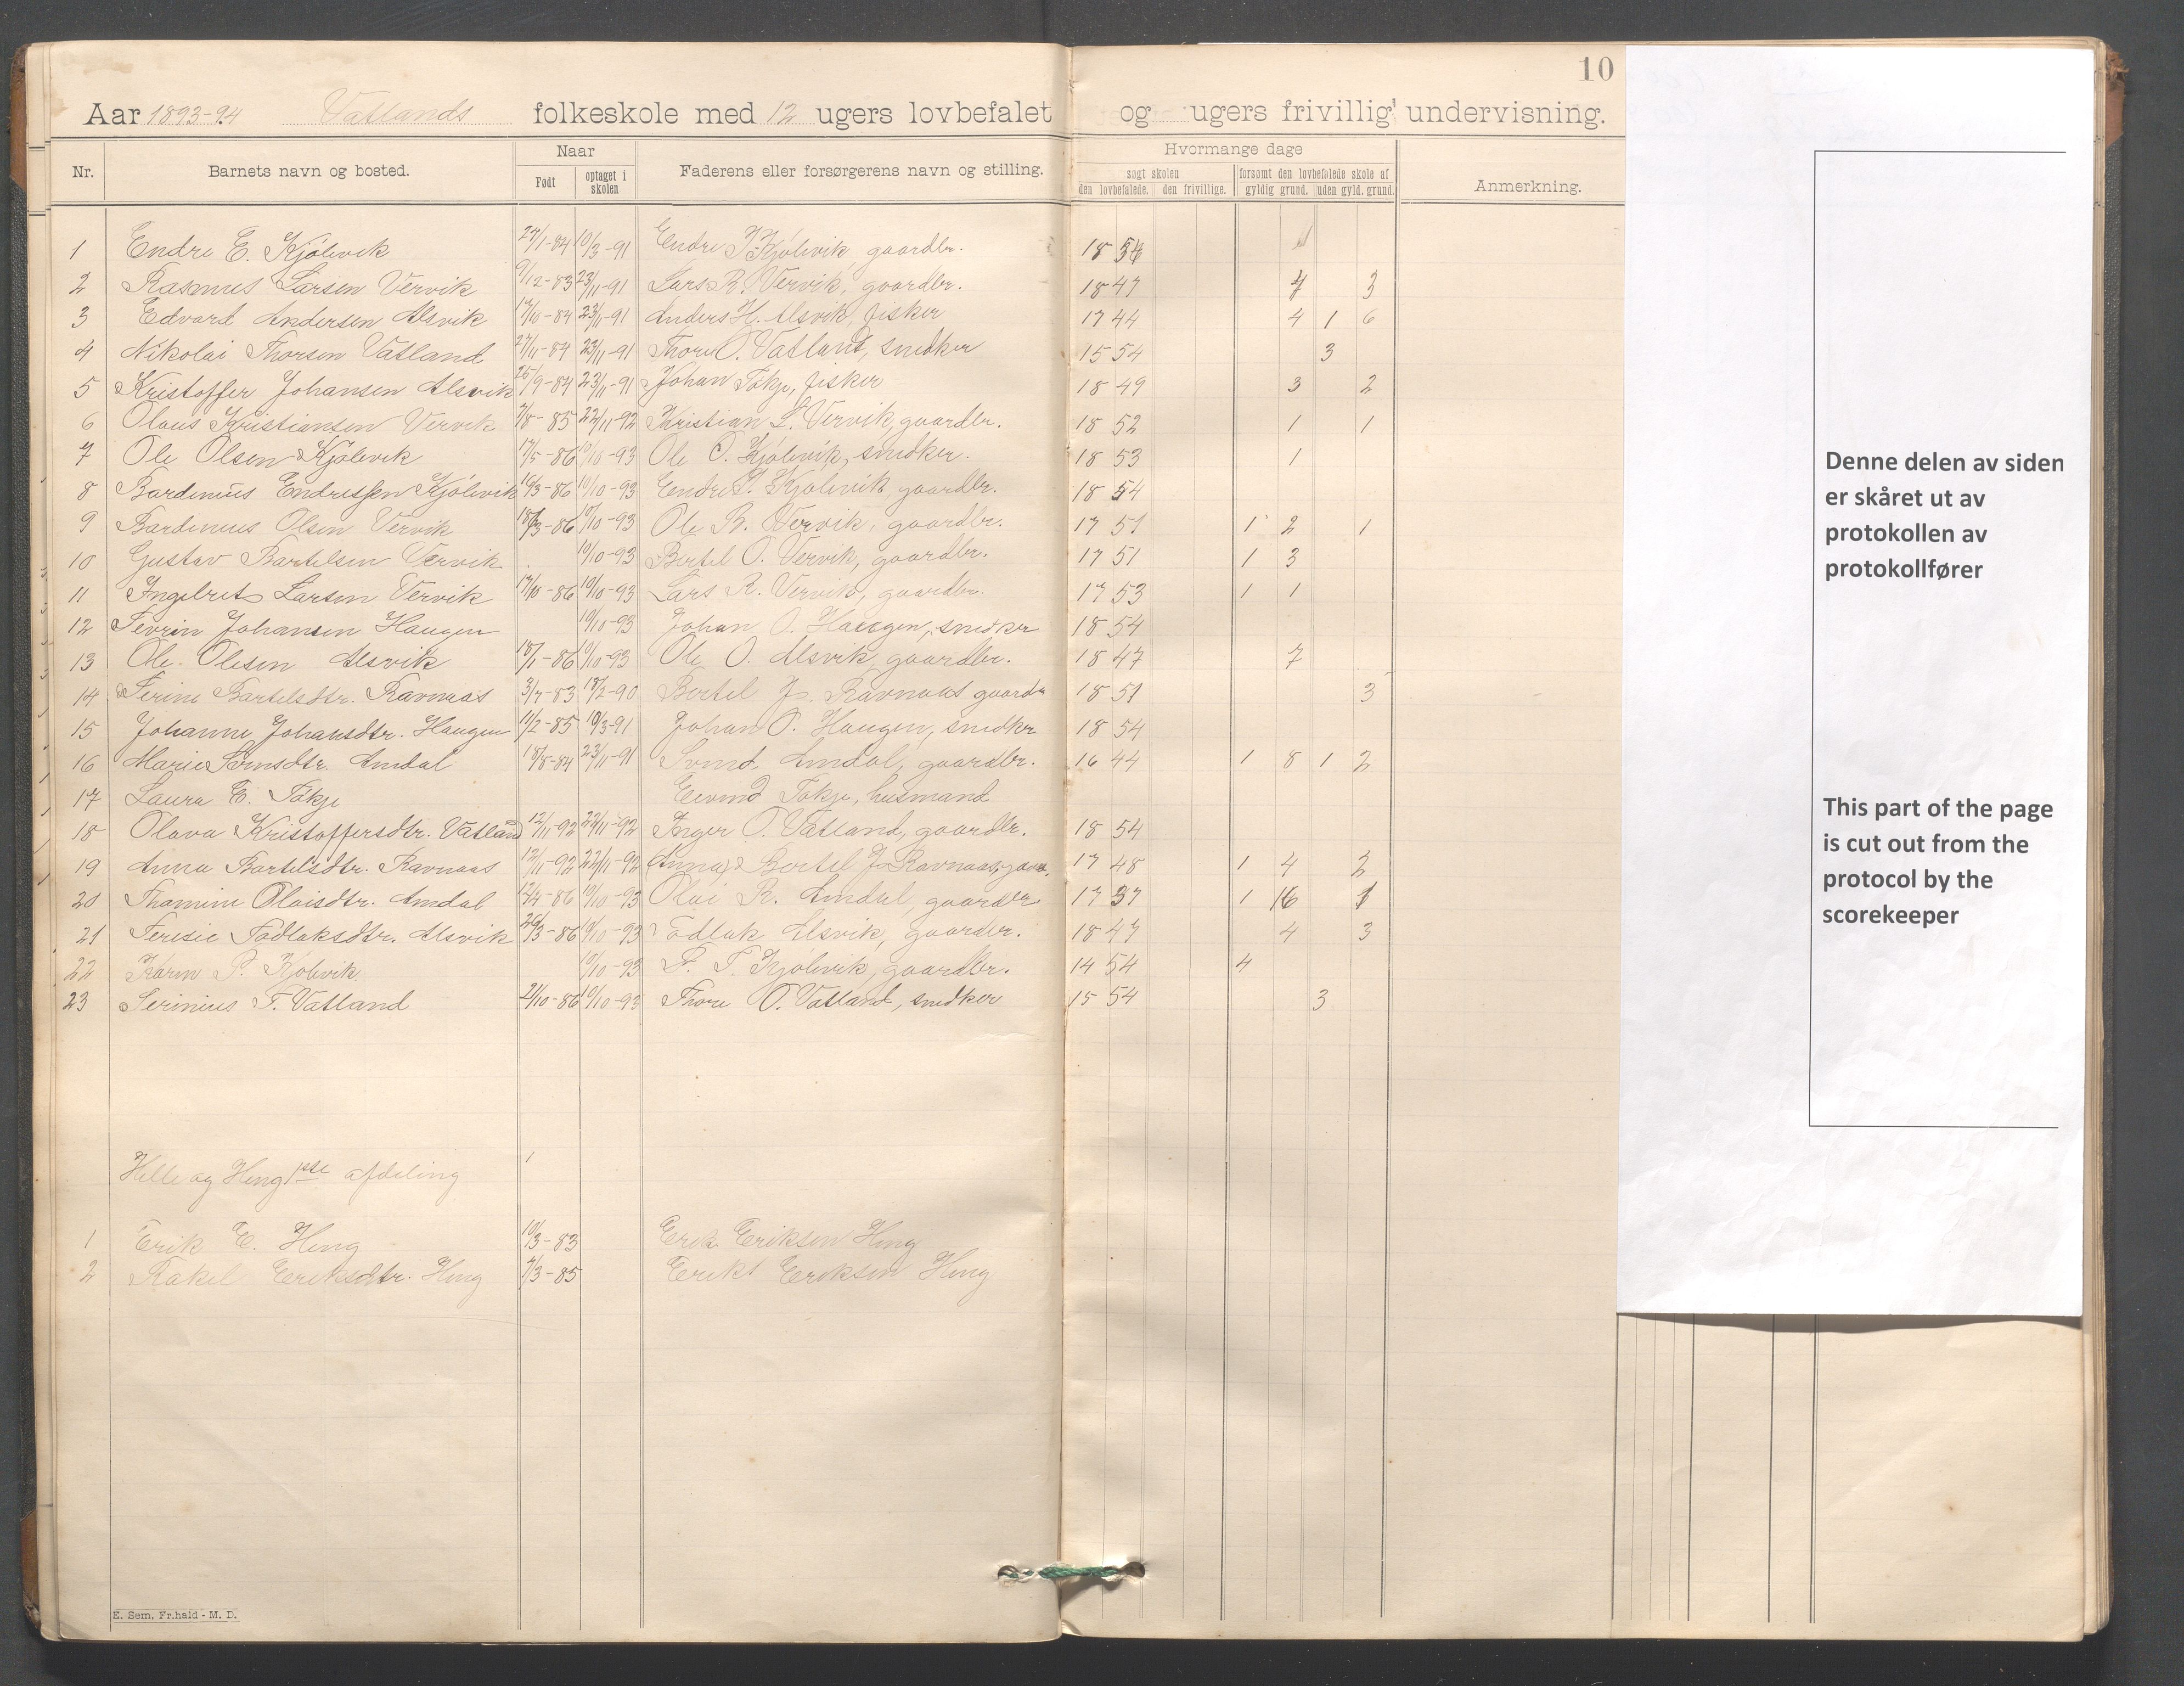 10
Aar 1893-94 Vatlands folkeskole med 12 ugers lovbefalet og ugers frivillig undervisning.
Nr. Barnets navn og bosted. Naar Født optaget i skolen Faderens eller forsørgerens navn og stilling. Hvormange dage søgt skolen den lovbefalede. den frivillige. forsømt den lovbefalede skole af gyldig grund. uden gyld. grund. Anmerkning.
1 Endre E. Kjølevik 27/1-84 10/3-91 Endre Kjølevik, gaardbr. 18 54
2 Rasmus Larsen Vervik 9/12-83 23/11-91 Lars R. Vervik, gaardbr. 18 47 4 3
3 Edvard Andersen Alsvik 17/10-84 23/11-91 Anders H. Alsvik, fisker 17 44 4 1 6
4 Nikolai Thorsen Vatland 27/11-84 23/11-91 Thore O. Vatland, snedker 15 54 3
5 Kristoffer Johansen Alsvik 26/9-84 23/11-91 Johan Tøkje, fisker 18 49 3 2
6 Olaus Kristiansen Vervik 7/8-85 22/11-92 Kristian L. Vervik, gaardbr. 18 52 1 1
7 Ole Olsen Kjølevik 17/5-86 10/10-93 Ole O. Kjølevik, snedker. 18 53 1
8 Bardinius Endressen Kjølevik 16/3-86 10/10-93 Endre Kjølevik, gaardbr. 18 54
9 Bardinius Olsen Vervik 18/3-86 10/10-93 Ole R. Vervik, gaardbr. 17 51 1 2 1
10 Gustav Bartelsen Vervik 10/10-93 Bertel O. Vervik, gaardbr. 17 51 1 3
11 Ingebret Larsen Vervik 17/10-86 10/10-93 Lars R. Vervik, gaardbr. 17 53 1 1
12 Sevrin Johansen Haugen 10/10-93 Johan O. Haugen, snedker 18 54
13 Ole Olesen Alsvik 18/1-86 10/10-93 Ole O. Alsvik, gaardbr. 18 47 7
14 Serine Bartelsdtr. Ravnaas 3/7-83 18/2-90 Bertel J. Ravnaas gaardbr 18 51 3
15 Johanne Johansdtr. Haugen 11/2-85 10/3-91 Johan O. Haugen, snedker 18 54
16 Marie Amdal 18/8-84 23/11-91 Amdal, gaardbr. 16 44 1 8 1 2
17 Laura E. Tøkje Eivind Tøkje, husmand
18 Olava Kristoffersdtr. Vatland 12/11-92 22/11-92 Inger O. Vatland, gaardbr. 18 54
19 Anna Bartelsdtr. Ravnaas 12/11-92 22/11-92 (Anna) Bertel J. Ravnaas, 17 48 1 4 2
20 Thomine Olaisdtr. Amdal 12/4-86 10/10-93 Olai R. Amdal, gaardbr 17 37 1 16 1
21 Feresie Todlaksdtr. Alsvik 26/3-86 10/10-93 Todlak Alsvik, gaardbr. 18 47 4 3
22 Karen P. Kjølevik 10/10-93 P. T. Kjølevik, gaardbr. 14 54 4
23 Serinius T. Vatland 21/10-86 10/10-93 Thore O. Vatland, snedker 15 54 3
Helle og Heng 1ste afdeling
1 Erik E. Heng 10/3-83 Erik Eriksen Heng
2 Rakel Eriksdtr. Heng 7/3-85 Erik Eriksen Heng
E. Sem, Fr.hald - M. D.
Denne delen av siden
er skåret ut av
protokollen av
protokollfører
This part of the page
is cut out from the
protocol by the
scorekeeper